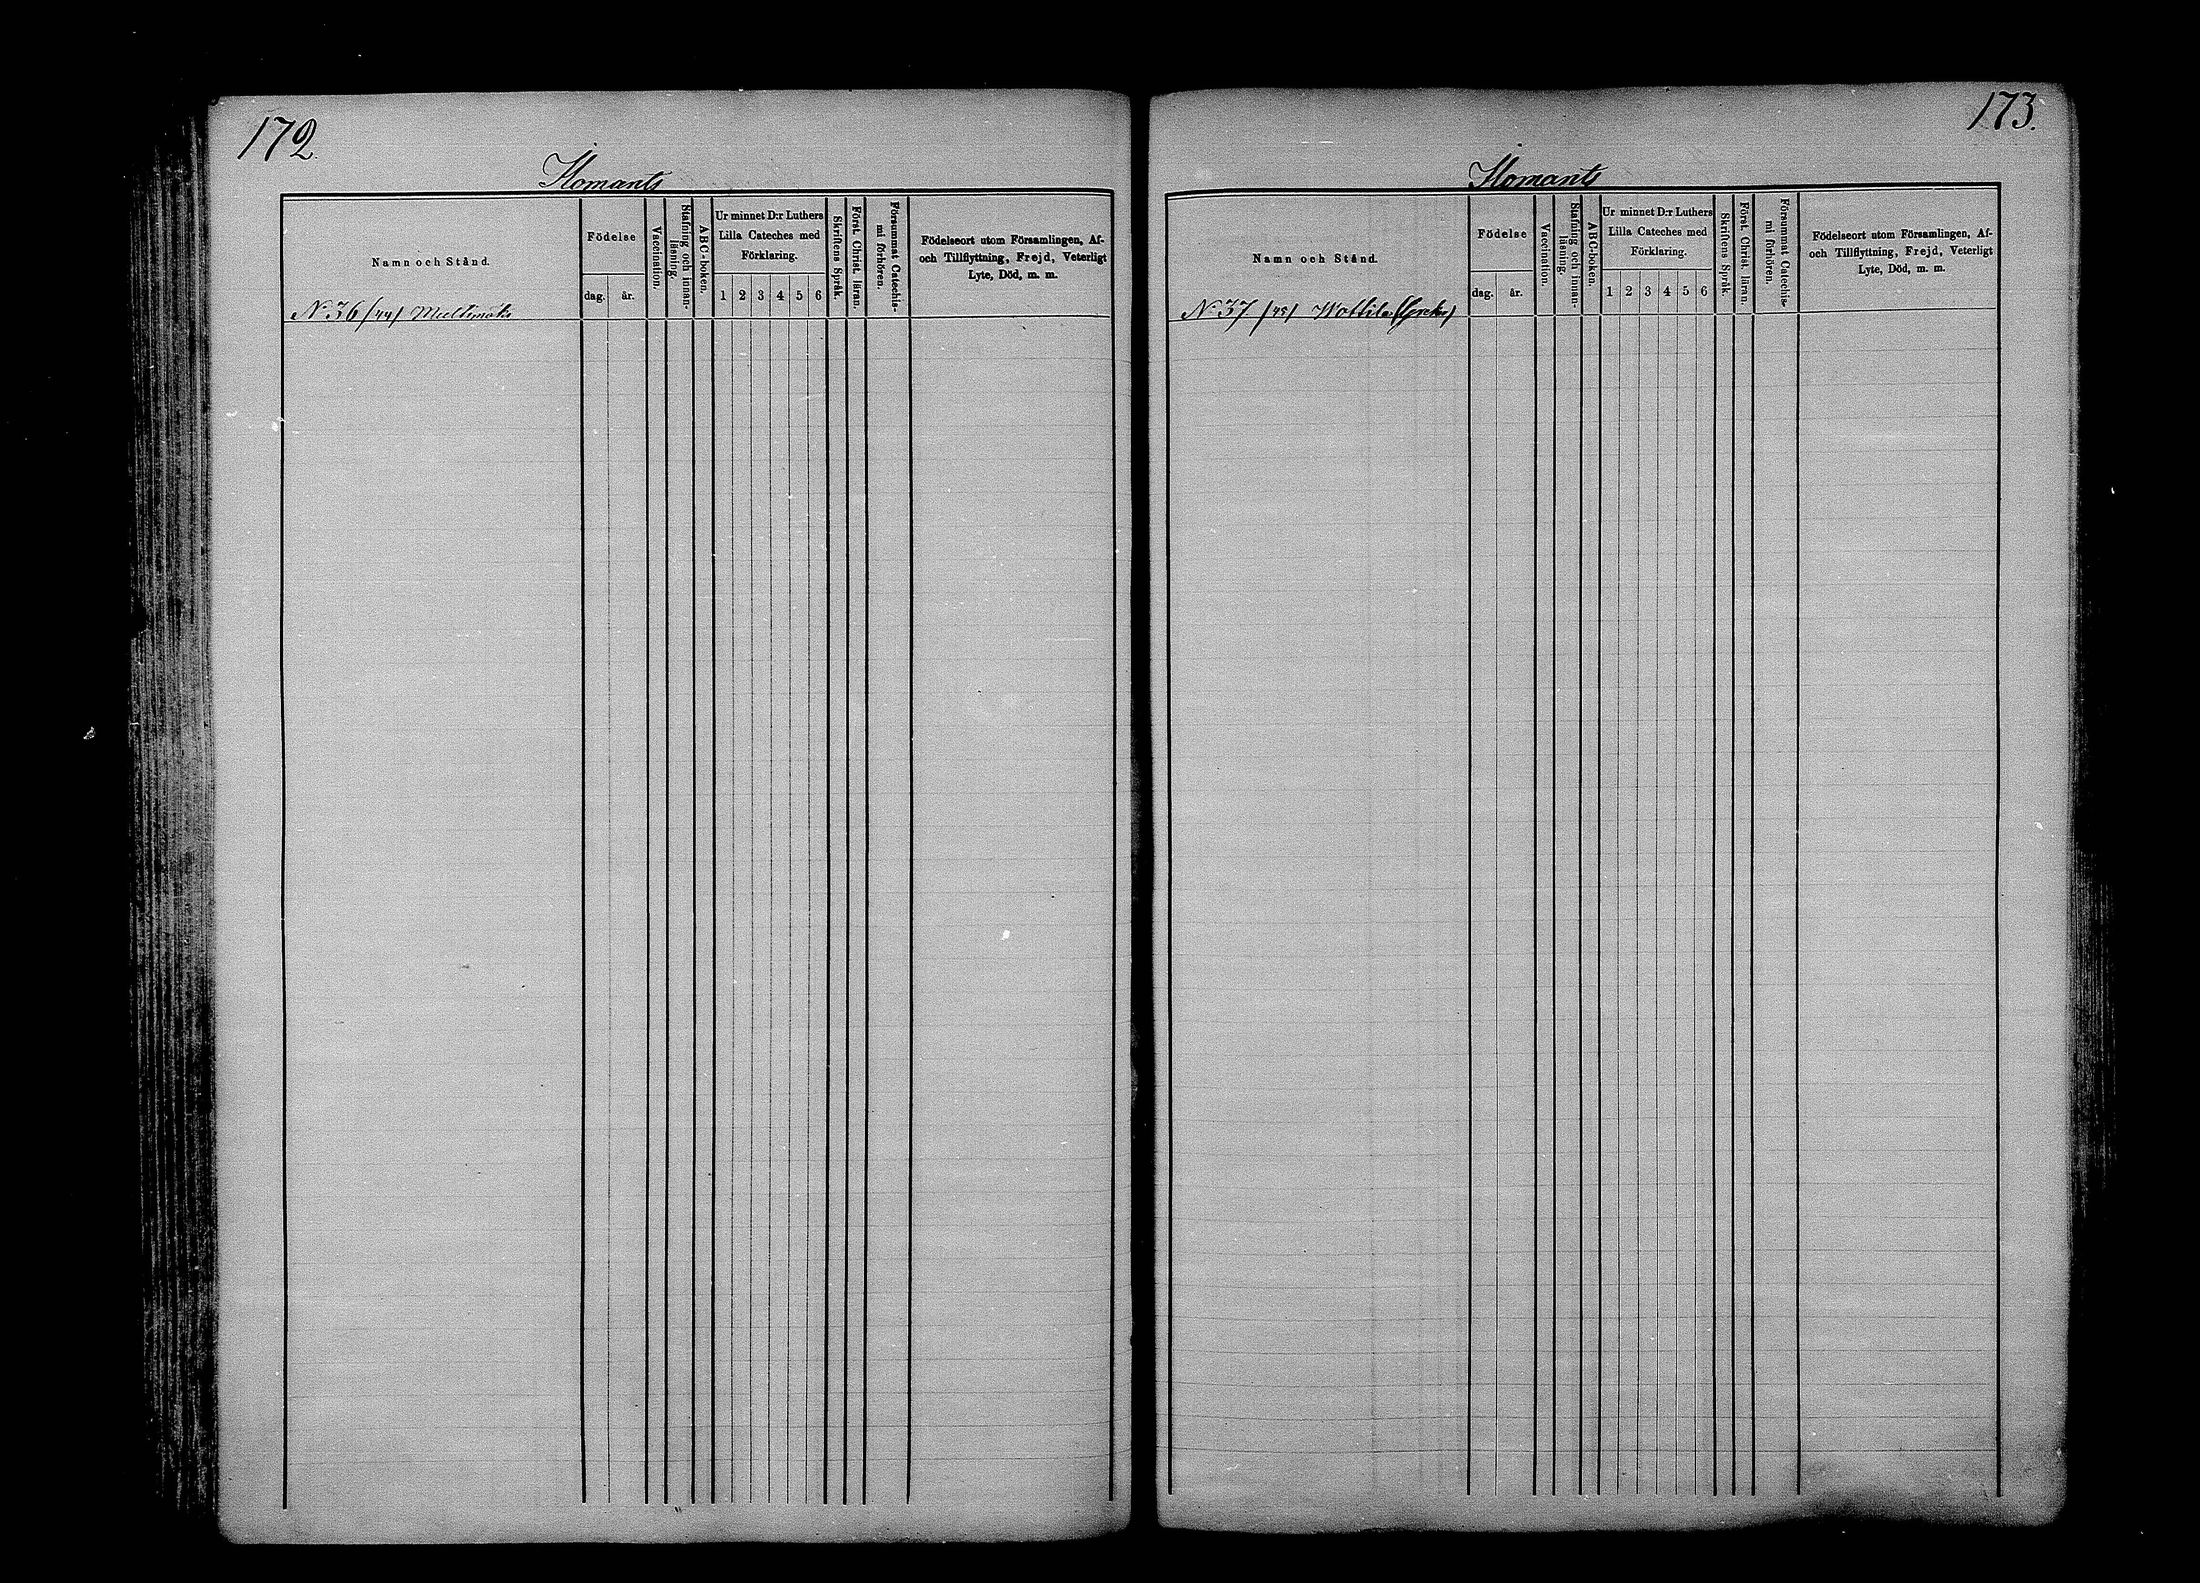 172.
Ilomants
Namn och Stånd.
Födelse
dag.
år.
Vaccination.
Stafning och innan-
läsning.
ABC-boken.
Ur minnet D:r Luthers
Lilla Cateches med
Förklaring.
1 2 3 4 5 6
Skriftens Språk.
Först. Christ. läran.
Försummat Catechis-
mi förhören.
Födelseort utom Församlingen, Af-
och Tillflyttning, Frejd, Veterligt
Lyte, Död, m. m.
N:o 36 (44)
173.
Ilomants
Namn och Stånd.
Födelse
dag.
år.
Vaccination.
Stafning och innan-
läsning.
ABC-boken.
Ur minnet D:r Luthers
Lilla Cateches med
Förklaring.
1 2 3 4 5 6
Skriftens Språk.
Först. Christ. läran.
Försummat Catechis-
mi förhören.
Födelseort utom Församlingen, Af-
och Tillflyttning, Frejd, Veterligt
Lyte, Död, m. m.
N:o 37 (45)